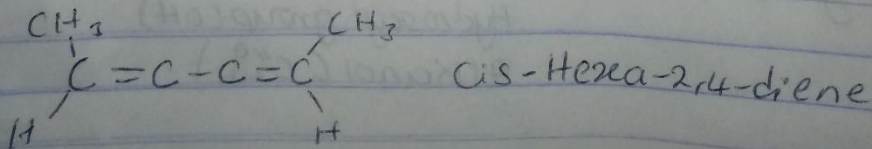 CH3 CH3
C=C-C=C Cis-Hexa-2,4-diene
H H